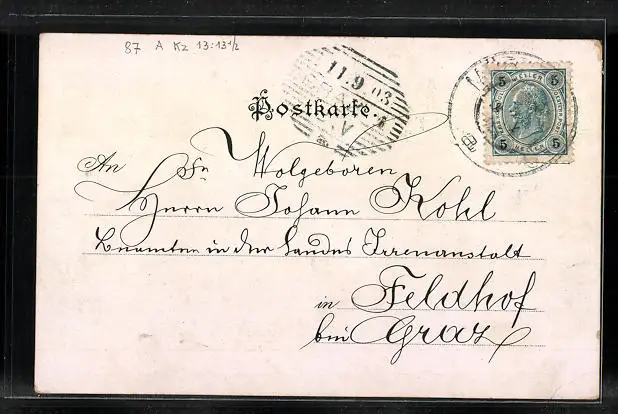 87 A Kz 13:13½
11.9 03
Postkarte.
5 HELLER 5
5 HELLER 5
An Sr Wolgeboren
Herrn Johann Kohl
Beamten in der Landes Irrenanstalt
in Feldhof
bei Graz